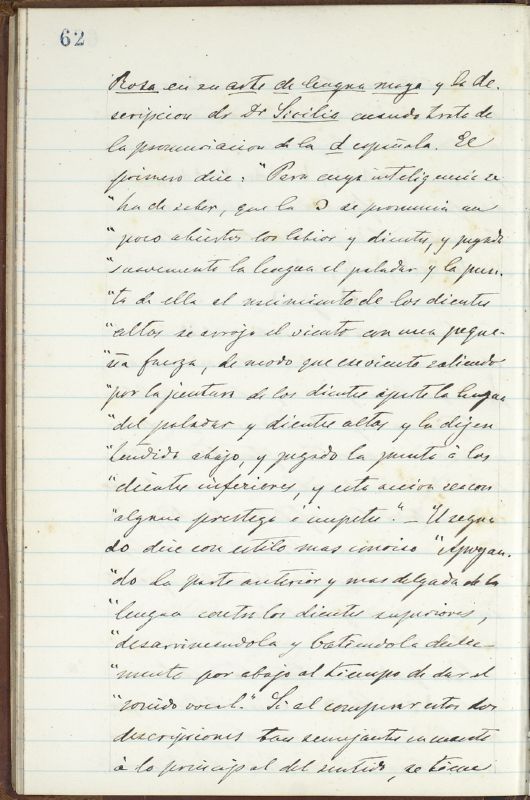 62
Rosa en su arte de lengua maya y la de-
scripcion dr Dr Sicilia cuando trata de
la pronunciacion de la d española. El
primero dice: "Para cuya inteligencia se
"ha de saber, que la Ɔ se pronuncia un
"poco abiertos los labios y dientes, y pegada
"suavemente la lengua al paladar y la pun-
"ta de ella al nacimiento de los dientes
"altos se arroja el viento con una peque-
"ña fuerza, de modo que ese viento saliendo
"por la juntura de los dientes aparte la lengua
"del paladar y dientes altos y la dejen
"tendida abajo, y pegado la punta á los
"dientes inferiores, y esta accion sea con
"alguna presteza é impetu". — El segun
do dice con estilo mas conciso "Apoyan-
"do la parte anterior y mas delgada de la
"lengua contra los dientes superiores,
"desarrimandola y batiendola dulce-
"mente por abajo al tiempo de dar el
"sonido vocal." Si al comparar estas dos
descripciones tan semejantes en cuanto
á lo principal del sentido, se tiene